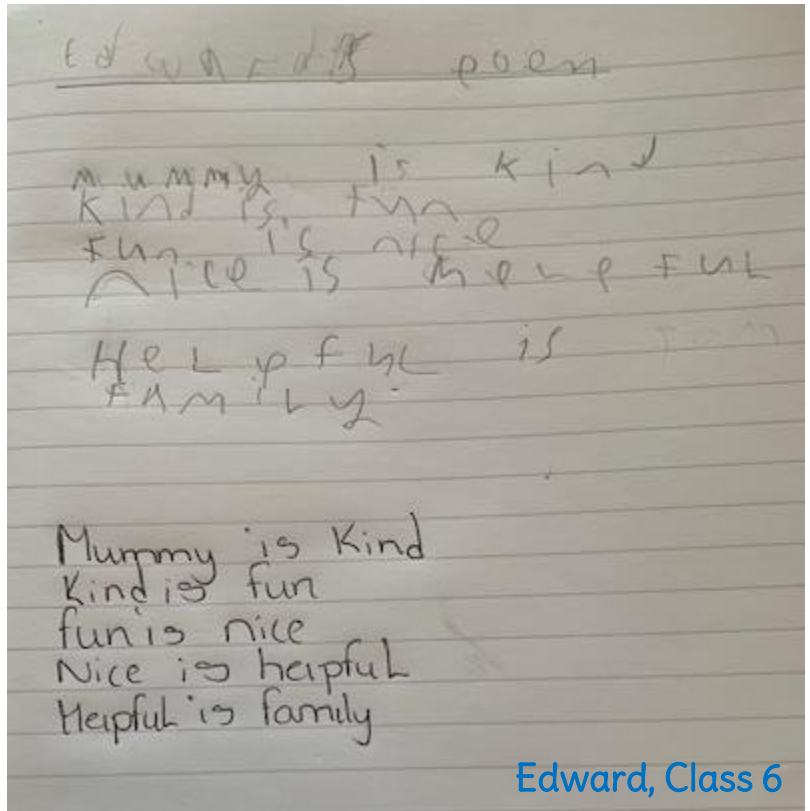 Edward's poem
mummy is kind
kind is. fun
fun is nice
nice is helpful
Helpful is
family.
Mummy is Kind
Kind is fun
fun is nice
Nice is helpful
Helpful is family
Edward, Class 6